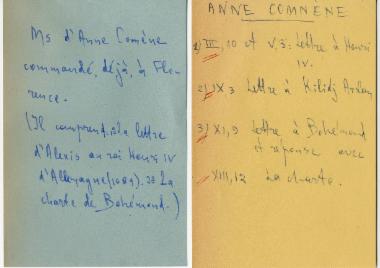 Ms d'Anne Comène
commandé, déjà, à Flo-
rence.
(Il comprend: la lettre
d'Alexis au roi Henri IV
d'Allemagne (1081). 2o La
charte de Bohémond.)
ANNE COMNÈNE
1) III, 10 et V, 3: Lettre à Henri
IV.
2) IX 3 Lettre à Kilidj Arslan
3) XI, 9 Lettre à Bohémond
et réponse avec
XIII, 12 La charte.